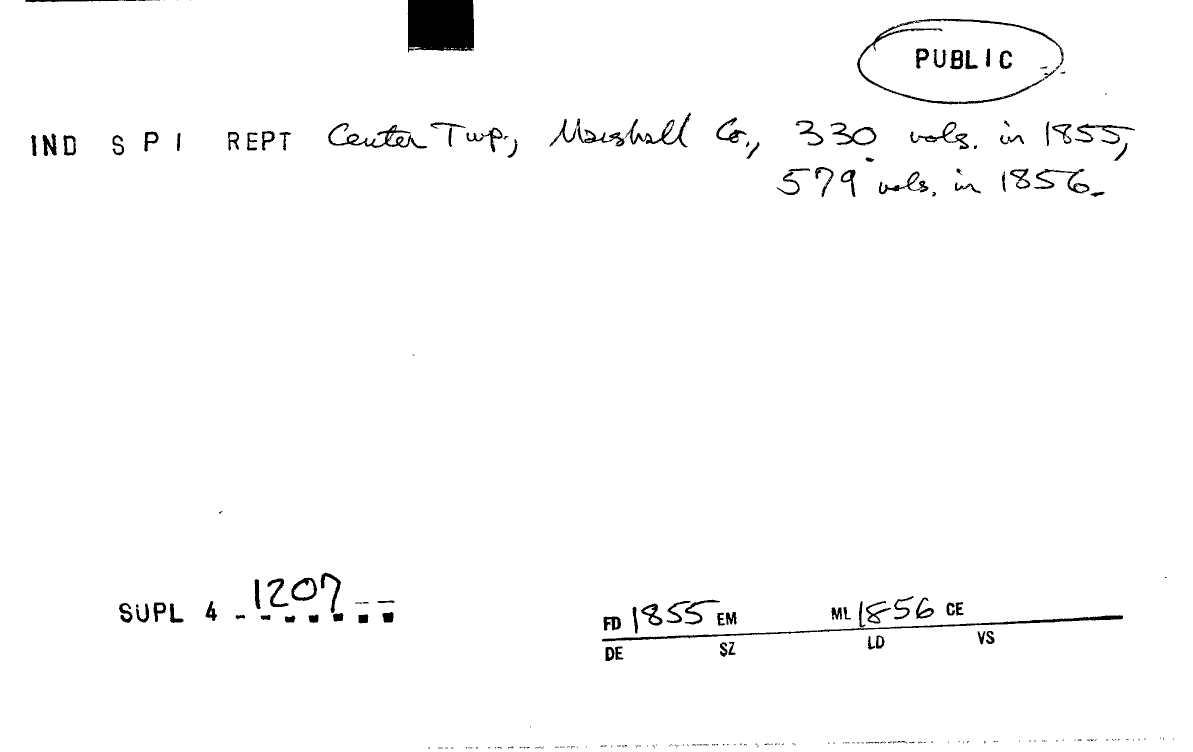 PUBLIC
IND S P I REPT Center Twp., Marshall Co., 330 vols. in 1855,
579 vols. in 1856.
SUPL 4 1207
FD 1855 EM ML 1856 CE
DE SZ LD VS